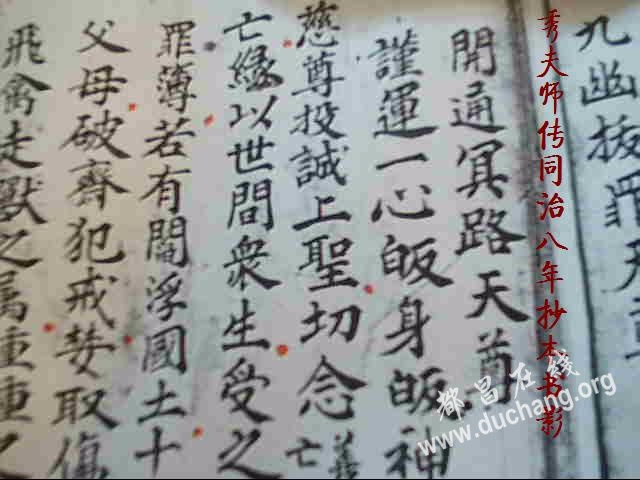 九幽拔罪天
秀夫师传同治八年抄本书影
開通冥路天尊
謹運一心皈身皈神
慈尊投誠上聖切念義亡
亡緣以世間衆生受之
罪薄若有閻浮國土十
父母破齊犯戒取傷
飛禽走獸之属重重之
都昌在线
www.duchang.org